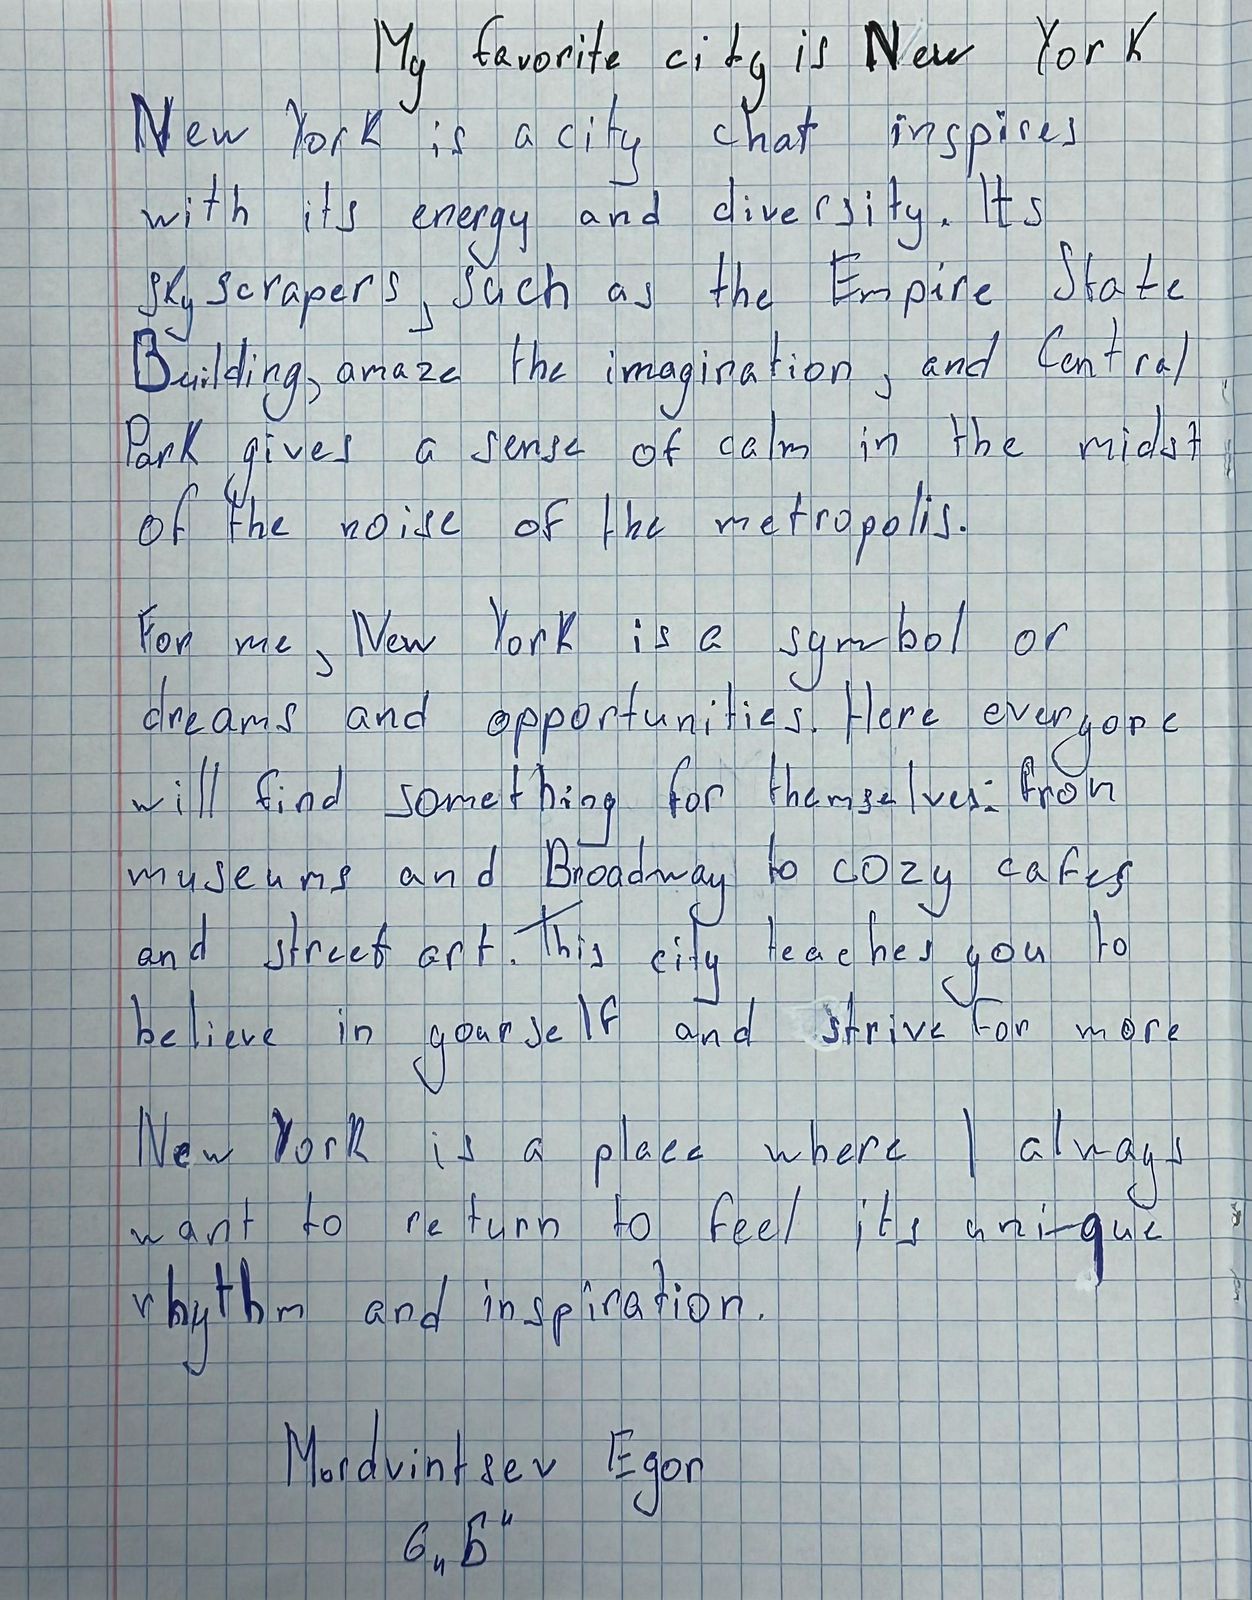 My favorite city is New York
New York is a city chat inspires
with its energy and diversity. Its
skyscrapers, such as the Empire State
Building, amaze the imagination, and Central
Park gives a sense of calm in the midst
of the noise of the metropolis.
For me, New York is a symbol or
dreams and opportunities. Here everyone
will find something for themselves: from
museums and Broadway to cozy cafes
and street art. This city teaches you to
believe in yourself and strive for more
New York is a place where I always
want to return to feel its uni-que
rhythm and inspiration.
Mordvintsev Egor
6 „Б"